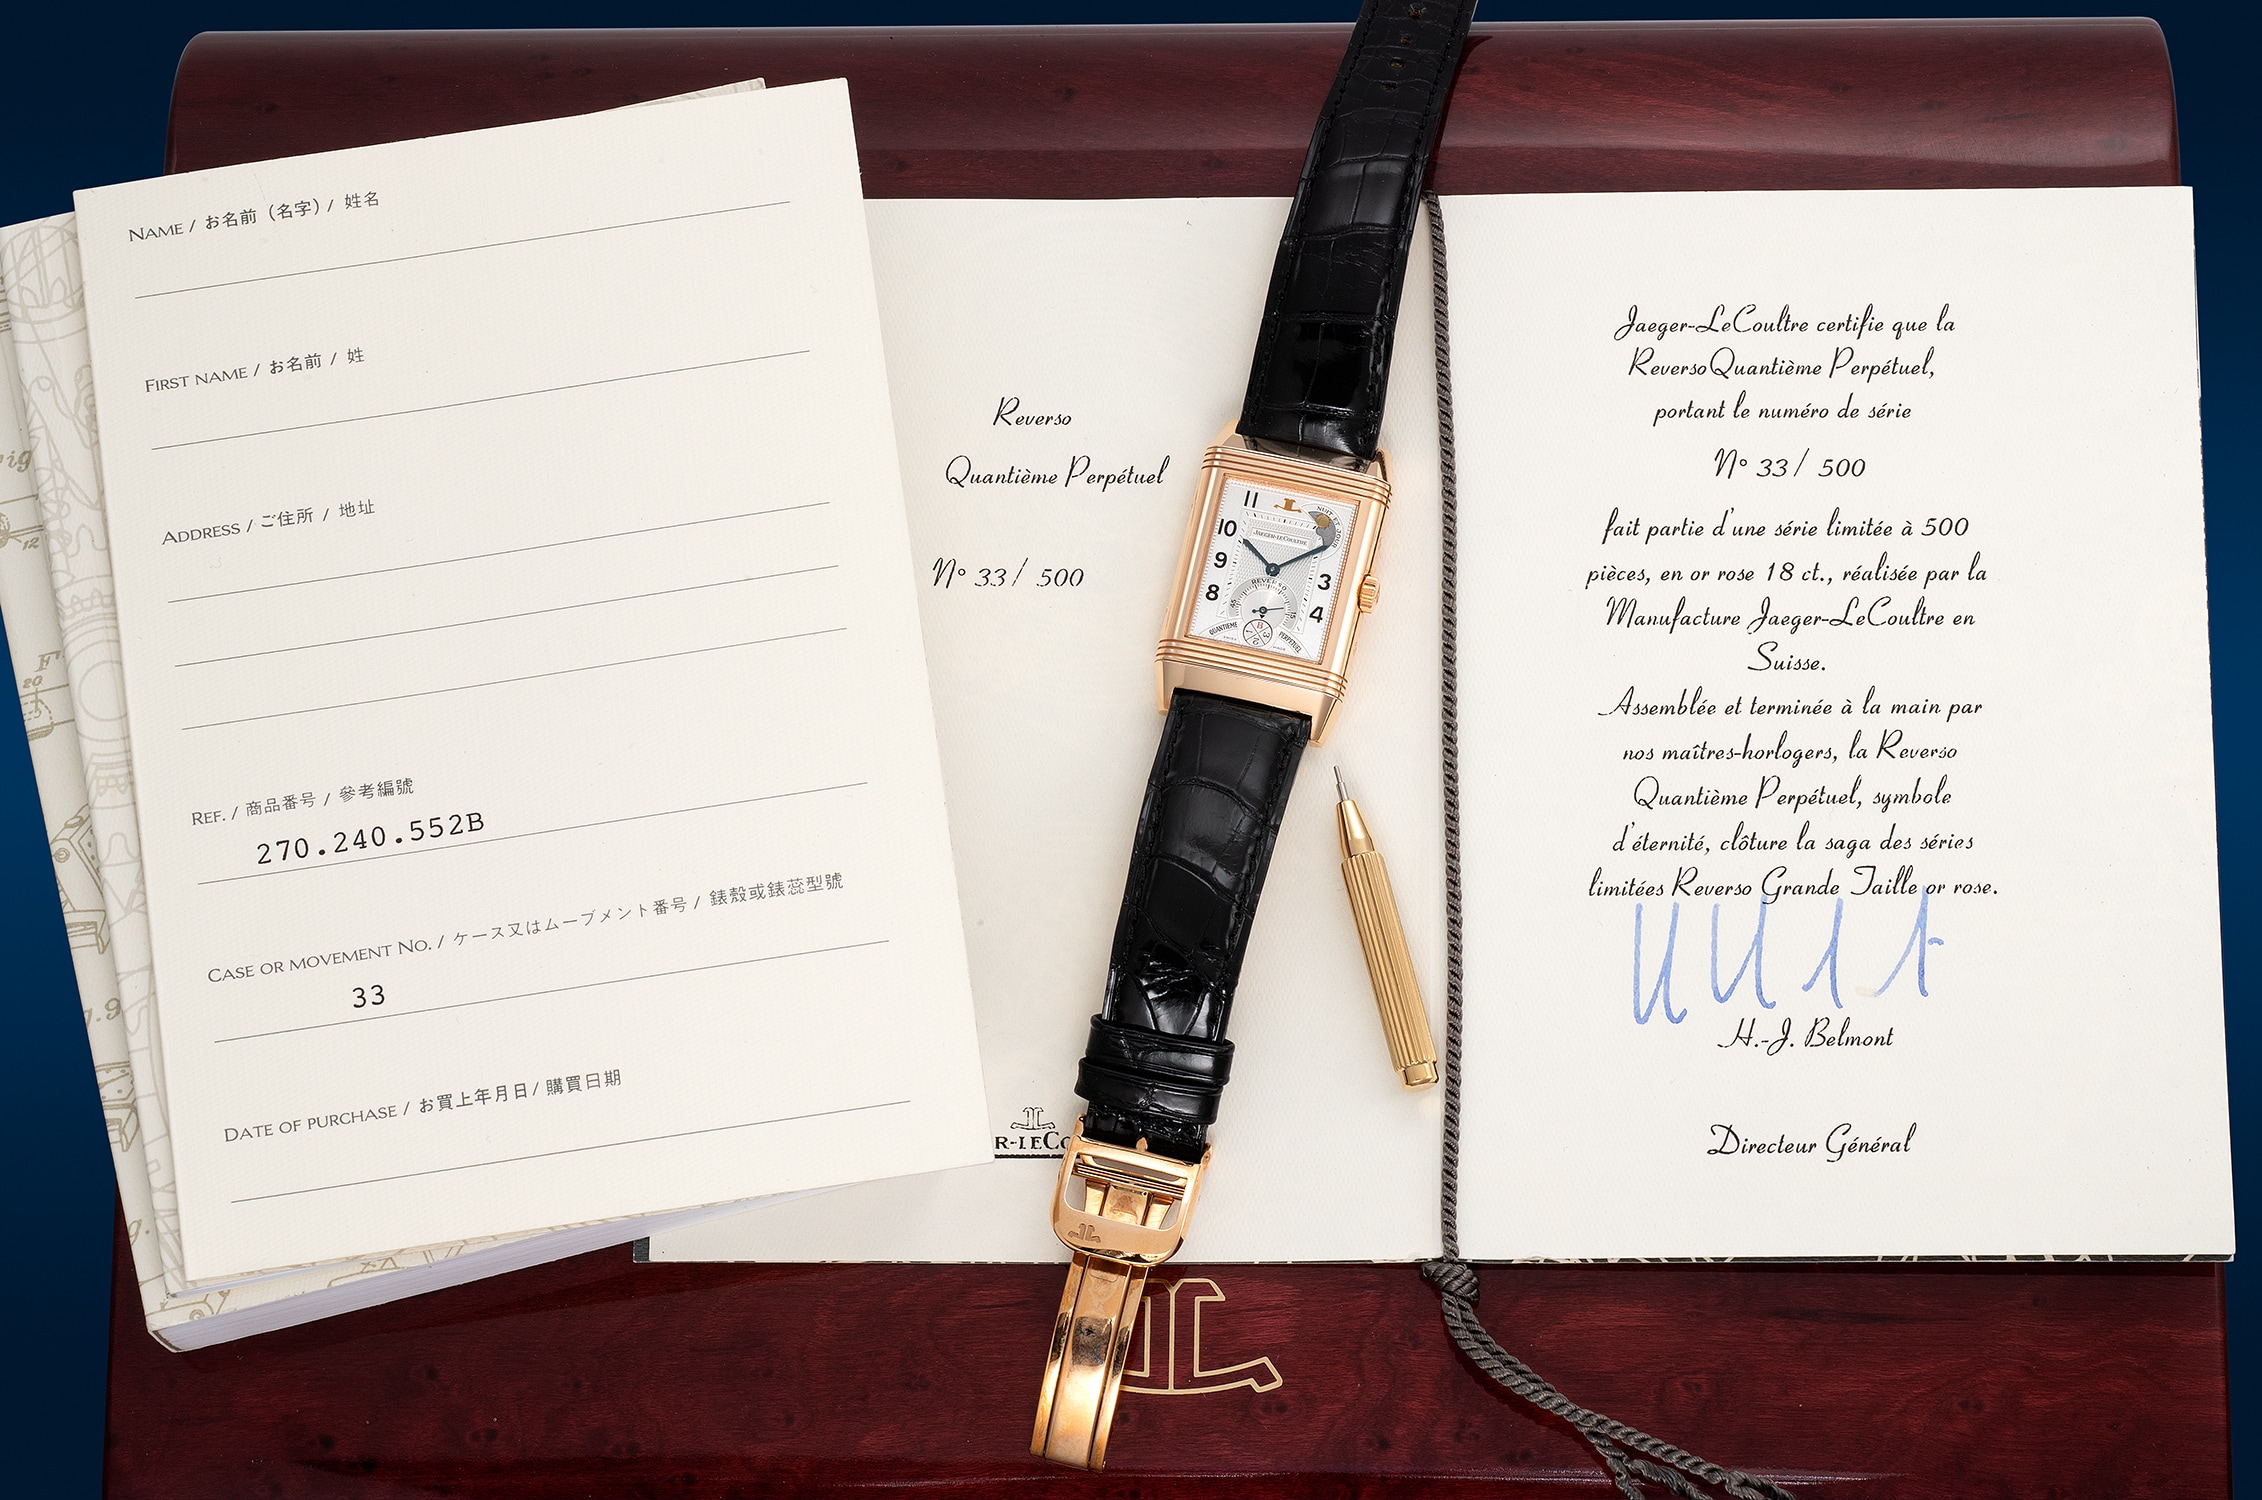 NAME / お名前 (名字) / 姓名
FIRST NAME / お名前 / 姓
ADDRESS / ご住所 / 地址
REF. / 商品番号 / 參考編號
270.240.552B
CASE OR MOVEMENT NO. / ケース又はムーブメント番号 / 錶殼或錶蕊型號
33
DATE OF PURCHASE / お買上年月日 / 購買日期
12
F
20
Reverso
Quantième Perpétuel
N° 33 / 500
R-LECO
11
10
9
8
3
4
NUIT ET JOUR
JAEGER-LECOULTRE
REVERSO
45
15
B
1
2
3
QUANTIEME
PERPETUEL
SWISS
MADE
Jaeger-LeCoultre certifie que la
ReversoQuantième Perpétuel,
portant le numéro de série
N° 33 / 500
fait partie d'une série limitée à 500
pièces, en or rose 18 ct., réalisée par la
Manufacture Jaeger-LeCoultre en
Suisse.
Assemblée et terminée à la main par
nos maîtres-horlogers, la Reverso
Quantième Perpétuel, symbole
d'éternité, clôture la saga des séries
limitées Reverso Grande Taille or rose.
H.-J. Belmont
Directeur Général